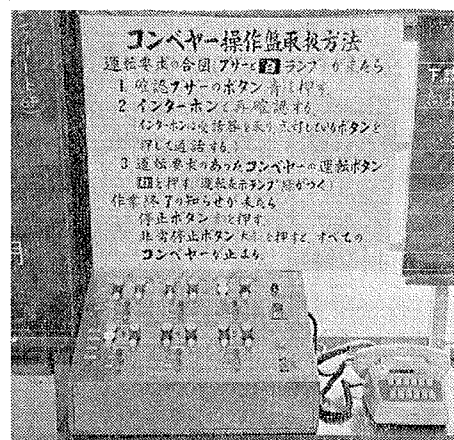 コンベヤー操作盤取扱方法
運転要求の合図ブザーと白ランプが来たら
1 確認ブザーのボタン青を押す
2 インターホンで再確認する
(インターホンは受話器を取り点灯しているボタンを
押して通話する)
3 運転要求のあったコンベヤーの運転ボタン
を押す 運転表示ランプ緑がつく
作業終了の知らせが来たら
停止ボタン を押す
非常停止ボタン を押すと、すべての
コンベヤーが止まる